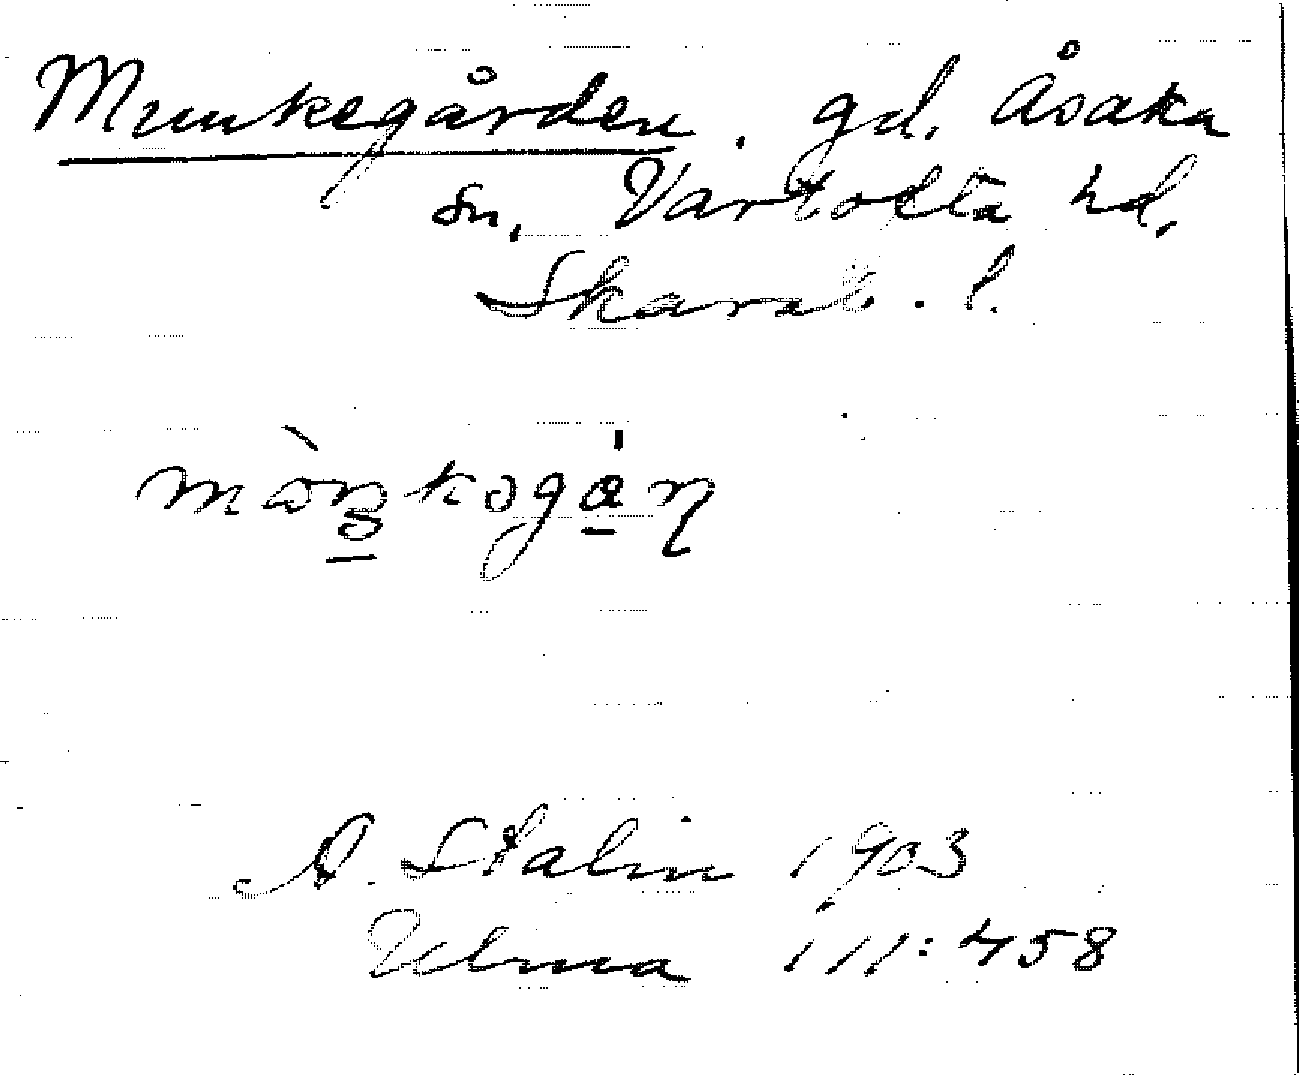 Munkegården. gd. Åsaka
sn, Vartofta hd.
Skarab. l.
A. Stalin 1903
Ulma 111:458